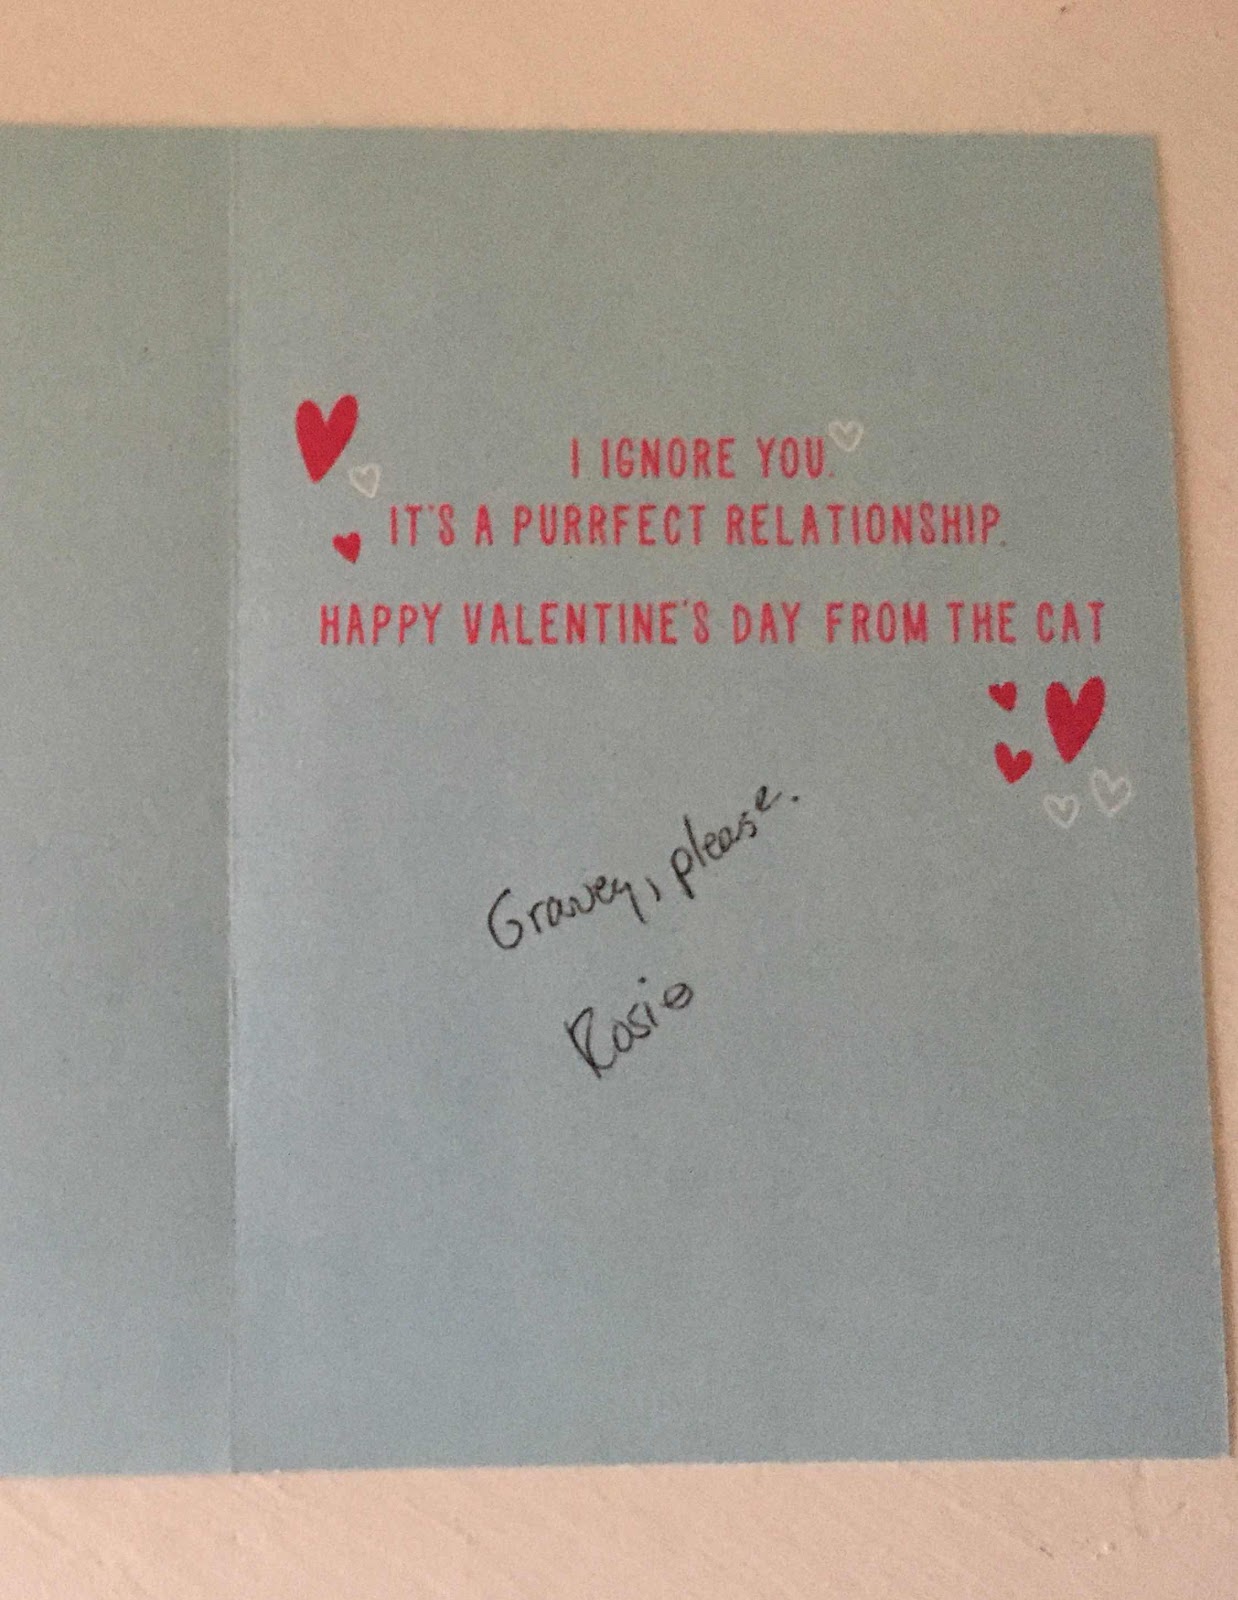 I IGNORE YOU.
IT'S A PURRFECT RELATIONSHIP.
HAPPY VALENTINE'S DAY FROM THE CAT
Gravey, please.
Rosie